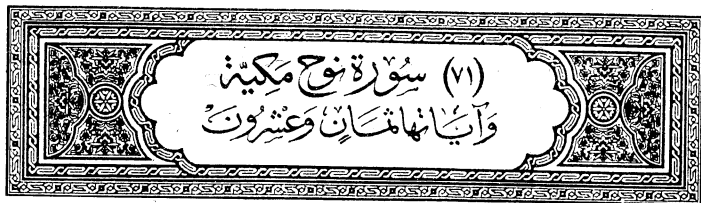 (٧١) سُورَة نوُح مَكيَّة
وَآيَاتهَا ثَمَانٍ وَعْشِرُونَ